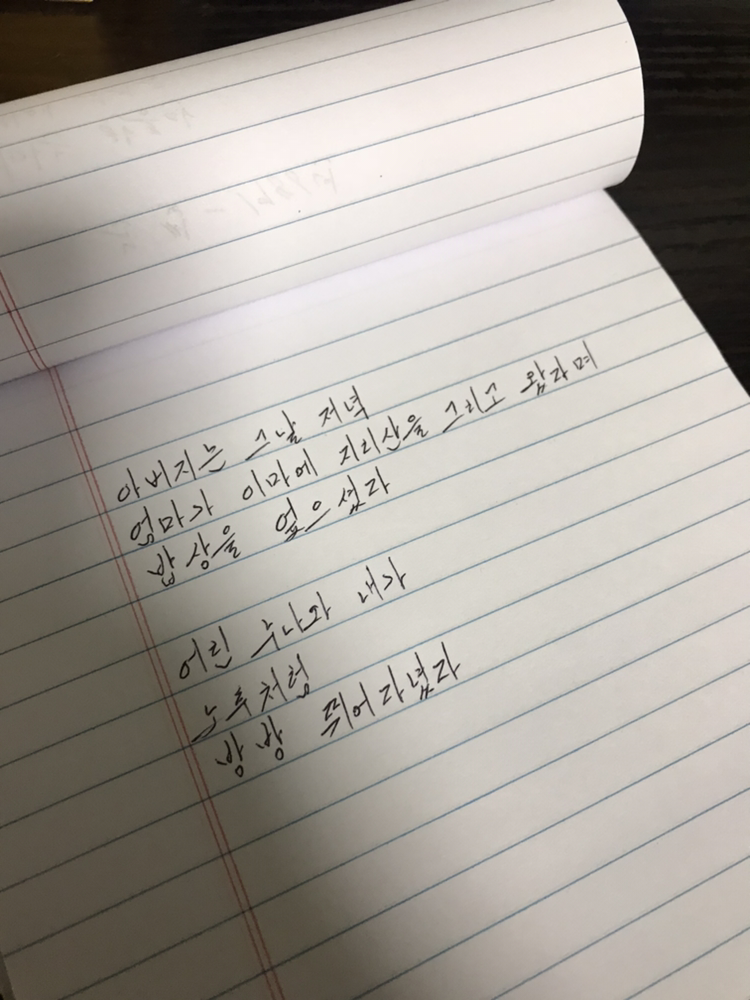 아버지는 그날 저녁
엄마가 이마에 지리산을 그리고 왔다며
밥상을 엎으셨다
어린 누나와 내가
노루처럼
방방 뛰어다녔다